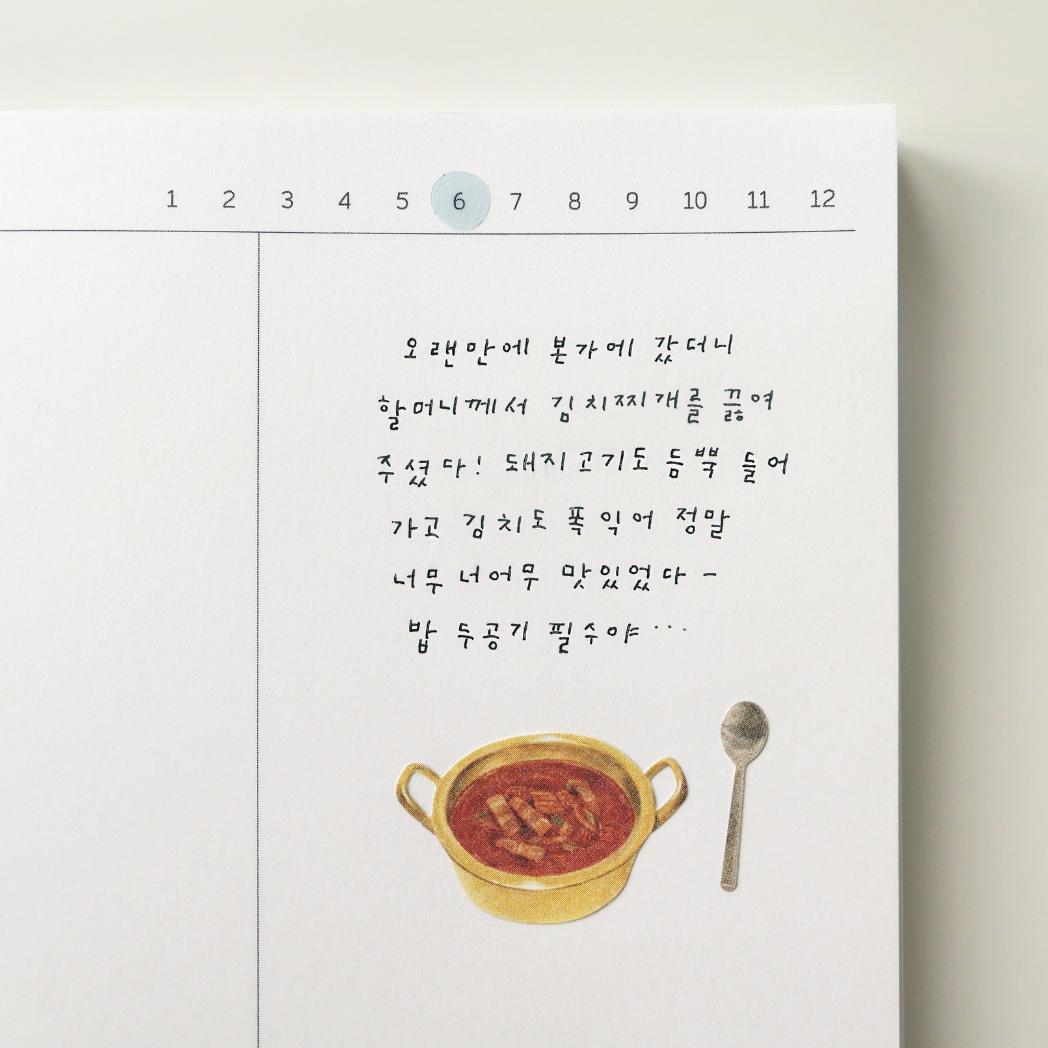 1 2 3 4 5 6 7 8 9 10 11 12
오랜만에 본가에 갔더니
할머니께서 김치찌개를 끓여
주셨다! 돼지고기도 듬뿍 들어
가고 김치도 푹 익어 정말
너무 너어무 맛있었다 -
밥 두공기 필수야 ...